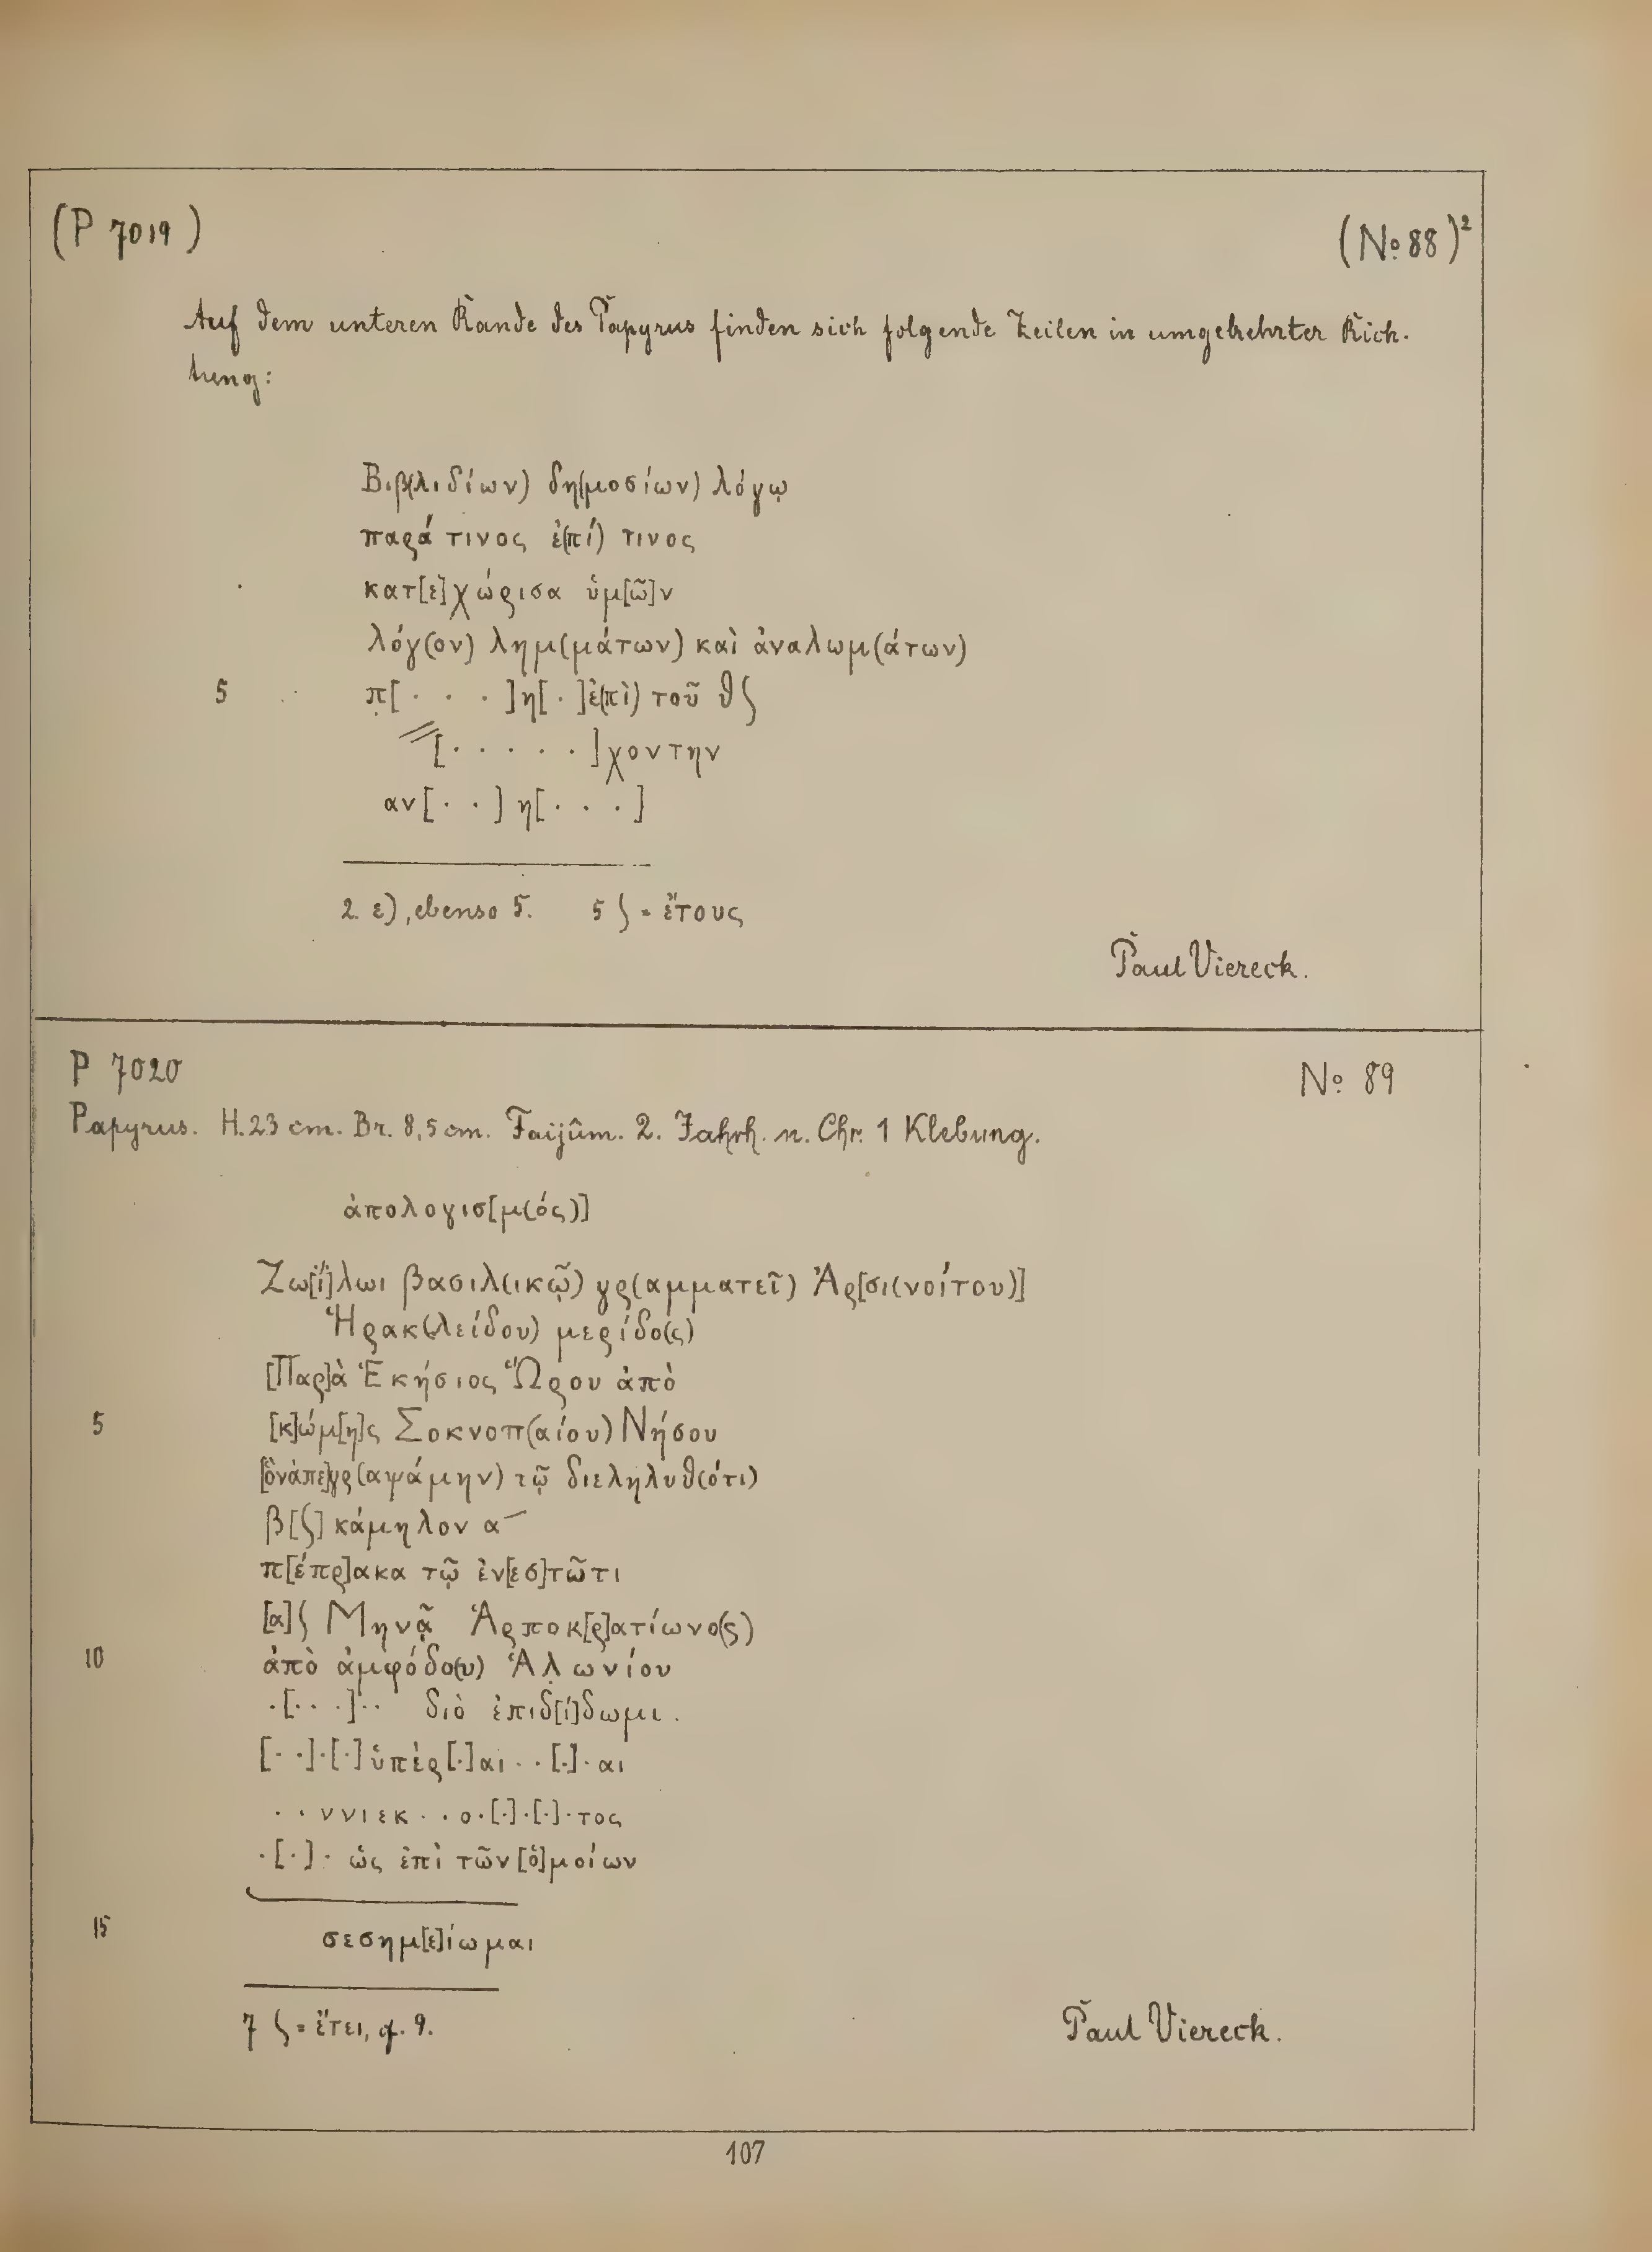 (P 7019)
(No 88)²
Auf dem unteren Rande des Papyrus finden sich folgende Zeilen in umgekehrter Rich-
tung:
Βιβ(λιδίων) δη(μοσίων) λόγῳ
παρά τινος ἐ(πί) τινος
κατ[ε]χώρισα ὑμ[ῶ]ν
λόγ(ον) λημ(μάτων) καὶ ἀναλωμ(άτων)
5 π̣[· · ·]η[·]ἐ(πὶ) τοῦ θʃ
[· · · · ·]χοντην
αν[· ·] η[· · ·]
2. ε), ebenso 5. 5 ʃ = ἔτους
Paul Viereck.
P 7020
No 89
Papyrus. H. 23 cm. Br. 8,5 cm. Faijûm. 2. Jahrh. n. Chr. 1 Klebung.
ἀπολογισ[μ(ός)]
Ζω[ΐ]λωι βασιλ(ικῷ) γρ(αμματεῖ) Ἀρ[σι(νοίτου)]
Ἡρακ(λείδου) μερίδο(ς)
[Παρ]ὰ Ἑκήσιος Ὥρου ἀπὸ
5 [κ]ώμ[η]ς Σοκνοπ(αίου) Νήσου
[ὃν ἀπε]γρ(αψάμην) τῷ διεληλυθ(ότι)
β[ʃ] κάμηλον α‾
π[έπρ]ακα τῷ ἐν[εσ]τῶτι
[α]ʃ Μηνᾷ Ἁρποκ[ρ]ατίωνο(ς)
10 ἀπὸ ἀμφόδο(υ) Ἁλ̣ωνίου
·[· · ·]· · διὸ ἐπιδ[ί]δωμι.
[· ·]·[·] ὑπὲρ[·]αι · · [·]· αι
· · ννιεκ · · ο·[·]·[·]·τος
·[·]· ὡς ἐπὶ τῶν [ὁ]μοίων
15 σεσημ[ε]ίωμαι
7 ʃ = ἔτει, cf. 9.
Paul Viereck.
107